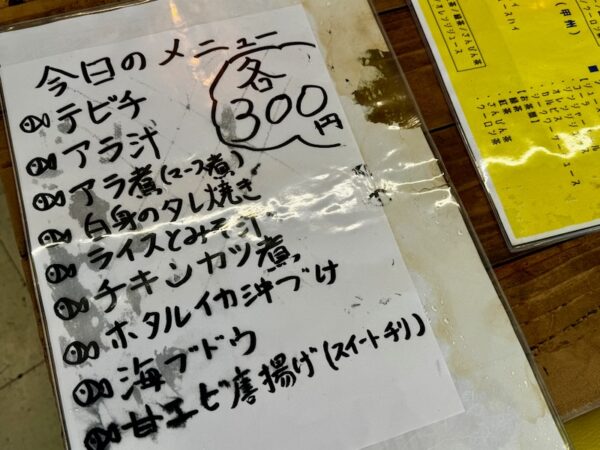 今日のメニュー
各
300円
テビチ
アラ汁
アラ煮(マース煮)
白身のタレ焼き
ライスとみそ汁
チキンカツ煮
ホタルイカ沖づけ
海ブドウ
甘エビ唐揚げ(スイートチリ)
(甲州)